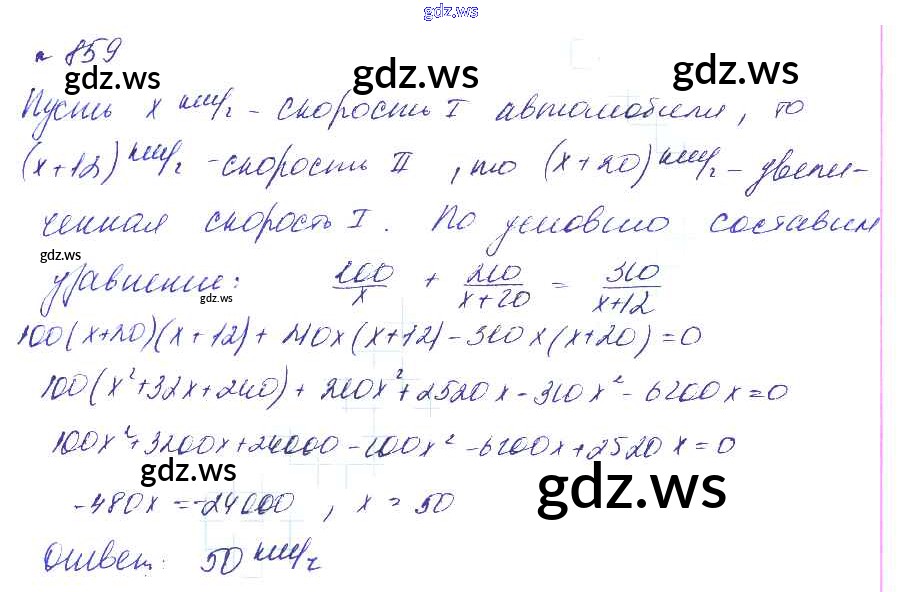 gdz.ws
n 859
gdz.ws gdz.ws gdz.ws
Пусть x км/ч - скорость I автомобиля, то
(x+12) км/ч - скорость II, то (x+20) км/ч - увели-
ченная скорость I. По условию составим
gdz.ws
уравнение: 100/x + 210/(x+20) = 310/(x+12)
gdz.ws
100(x+20)(x+12) + 210x(x+12) - 310x(x+20) = 0
100(x²+32x+240) + 210x² + 2520x - 310x² - 6200x = 0
100x²+3200x+24000 - 100x² - 6200x + 2520x = 0
gdz.ws gdz.ws
-480x = -24000, x = 50
Ответ: 50 км/ч